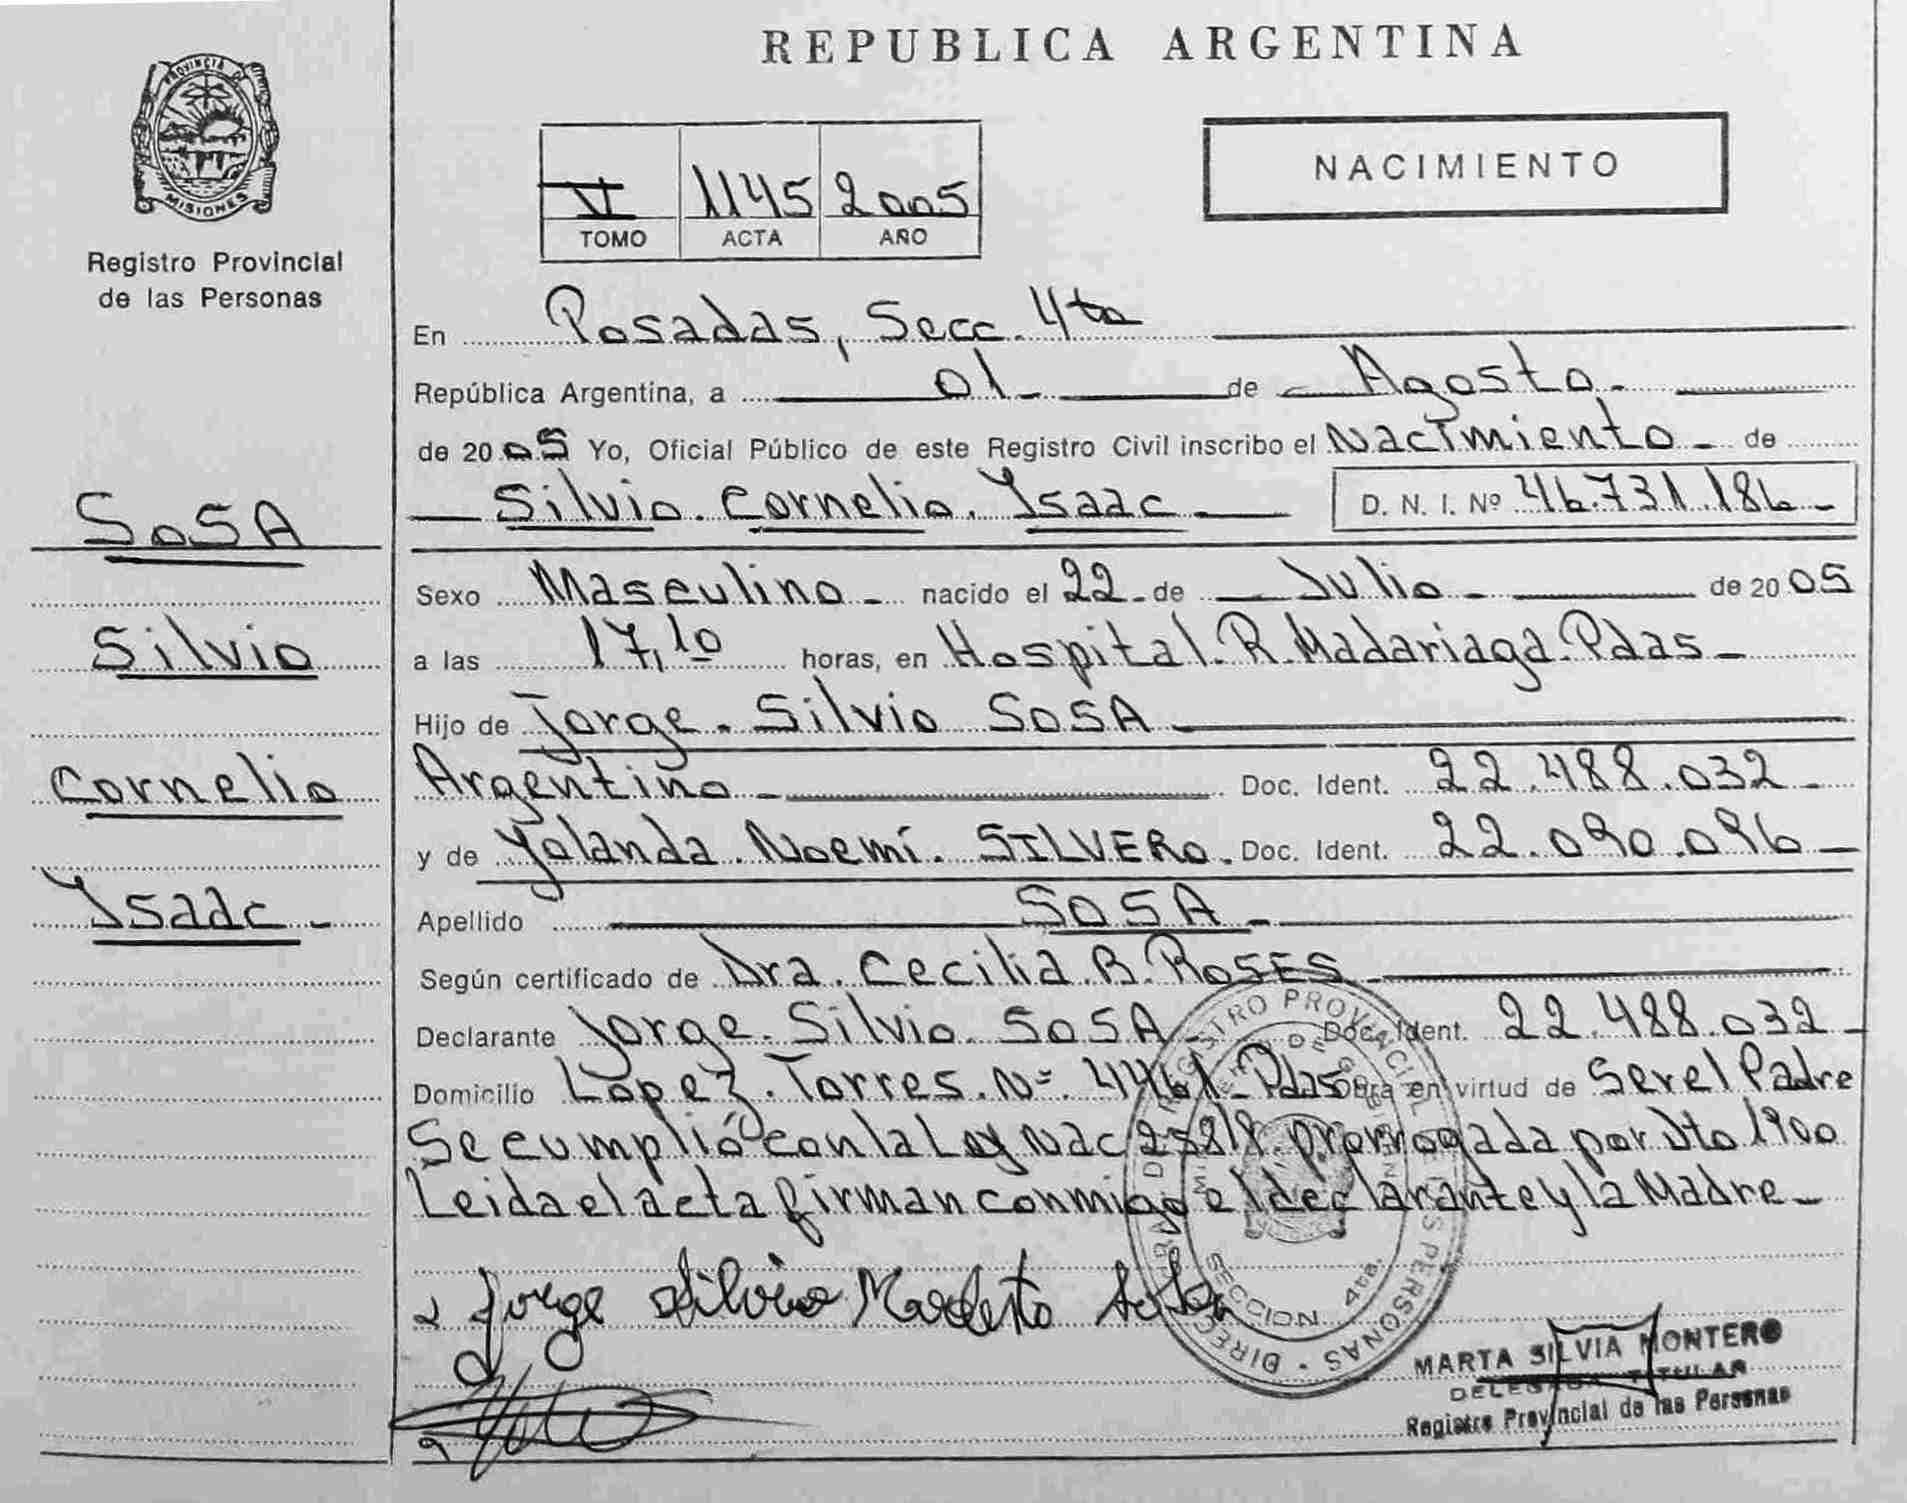 REPUBLICA ARGENTINA
PROVINCIA DE
MISIONES
Registro Provincial
de las Personas
NACIMIENTO
VI 1145 2005
TOMO ACTA AÑO
En Posadas, Secc. 4ta
República Argentina, a 01 de Agosto
de 2005 Yo, Oficial Público de este Registro Civil inscribo el Nacimiento de
Silvio Cornelio Isaac D. N. I. Nº 46.731.186
Sexo Masculino nacido el 22 de Julio de 2005
a las 17,10 horas, en Hospital. R. Madariaga. Pdas
Hijo de Jorge Silvio SOSA
Argentino Doc. Ident. 22.488.032
y de Yolanda Noemí SILVERO. Doc. Ident. 22.090.096
Apellido SOSA
Según certificado de Dra. Cecilia B. ROSES
Declarante Jorge Silvio SOSA Doc. Ident. 22.488.032
Domicilio López Torres Nº 4461 Pdas Obra en virtud de Ser el Padre
Se cumplió con la Ley Nac 25818 prorrogada por Dto 1900
Leida el acta firman conmigo el declarante y la Madre
SOSA
Silvio
Cornelio
Isaac
Jorge Silvio Modesto Sosa
REGISTRO PROVINCIAL DE LAS PERSONAS
SECCION 4ta.
MARTA SILVIA MONTERO
DELEGADA TITULAR
Registro Provincial de las Personas